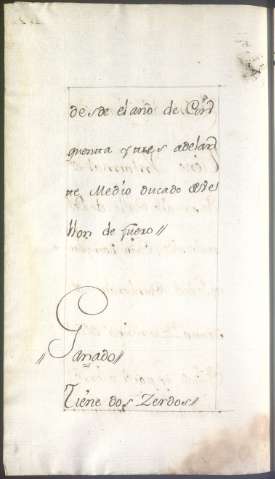 desde el año de Cin
quenta y tres adelan
te Medio ducado de Ve
llon de fuero //
// Ganado //
Tiene dos Zerdos //